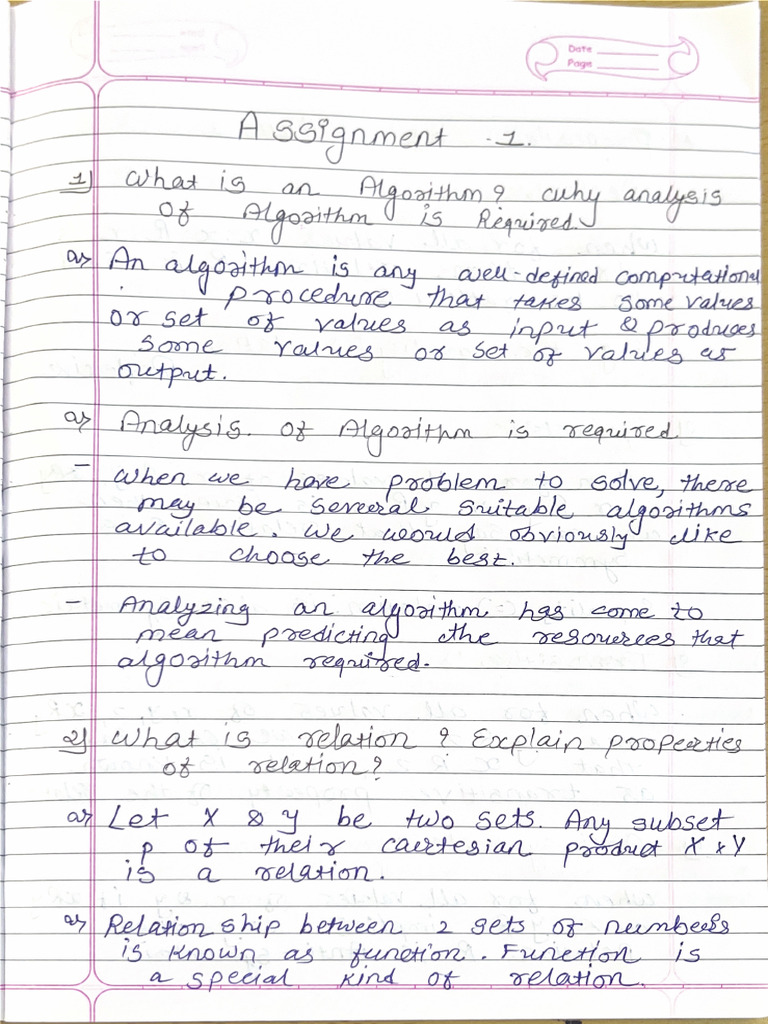 Date
Page
Assignment -1.
1) What is an Algorithm? Why analysis
of Algorithm is Required.
a) An algorithm is any well-defined computational
procedure that takes some values
or set of values as input & produces
some values or set of values as
output.
a) Analysis of Algorithm is required
- when we have problem to solve, there
may be several suitable algorithms
available. we would obviously like
to choose the best.
- Analyzing an algorithm has come to
mean predicting the resources that
algorithm required.
2) What is relation ? Explain properties
of relation?
a) Let X & y be two sets. Any subset
p of their cartesian product X x Y
is a relation.
a) Relation ship between 2 sets of numbers
is known as function. Function is
a special kind of relation.